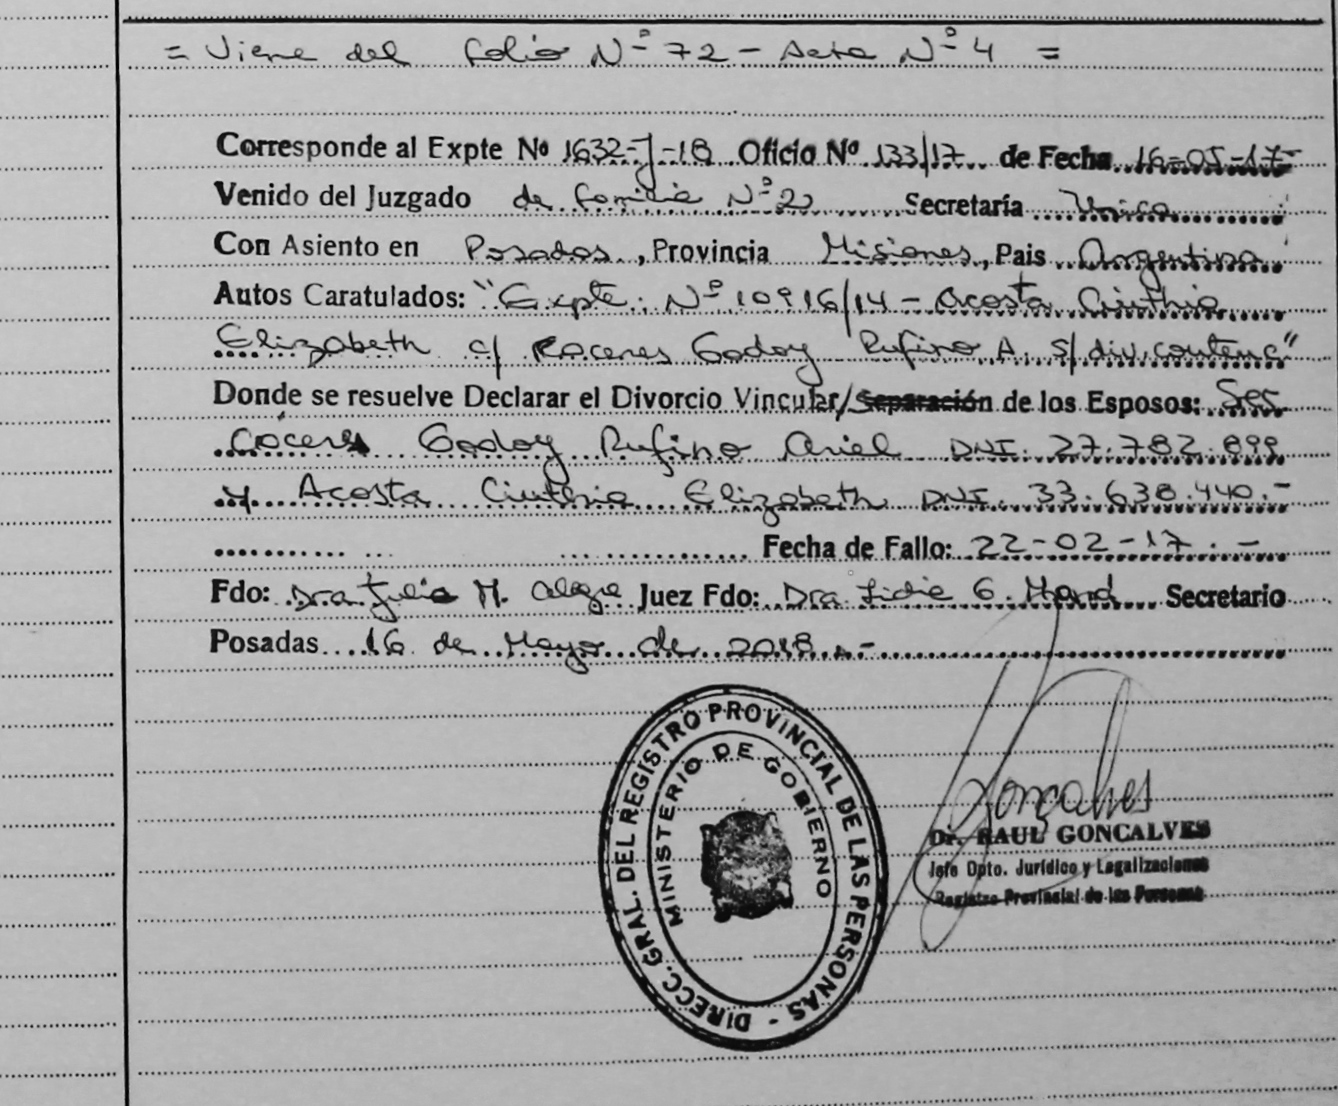 = Viene del folio Nº 72 - Acta Nº 4 =
Corresponde al Expte Nº 1632-J-18 Oficio Nº 133/17 de Fecha 16-05-17-
Venido del Juzgado de familia Nº 2 Secretaría Unica
Con Asiento en Posadas, Provincia Misiones, Pais Argentina
Autos Caratulados: "Expte. Nº 10916/14 - Acosta Cinthia
Elizabeth c/ Raceres Godoy Rufino A. S/ div. contenc"
Donde se resuelve Declarar el Divorcio Vincular/Separación de los Esposos: Sres
Caceres Godoy Rufino Ariel DNI. 27.782.899
y Acosta Cinthia Elizabeth DNI. 33.638.440.-
Fecha de Fallo: 22-02-17.-
Fdo: Dra. Julia M. Alegre Juez Fdo: Dra Lidia G. Secretario
Posadas 16 de Mayo de 2018.-
DIRECC. GRAL. DEL REGISTRO PROVINCIAL DE LAS PERSONAS -
MINISTERIO DE GOBIERNO
Goncalves
Dr. RAUL GONCALVES
Jefe Dpto. Jurídico y Legalizaciones
Registro Provincial de las Personas